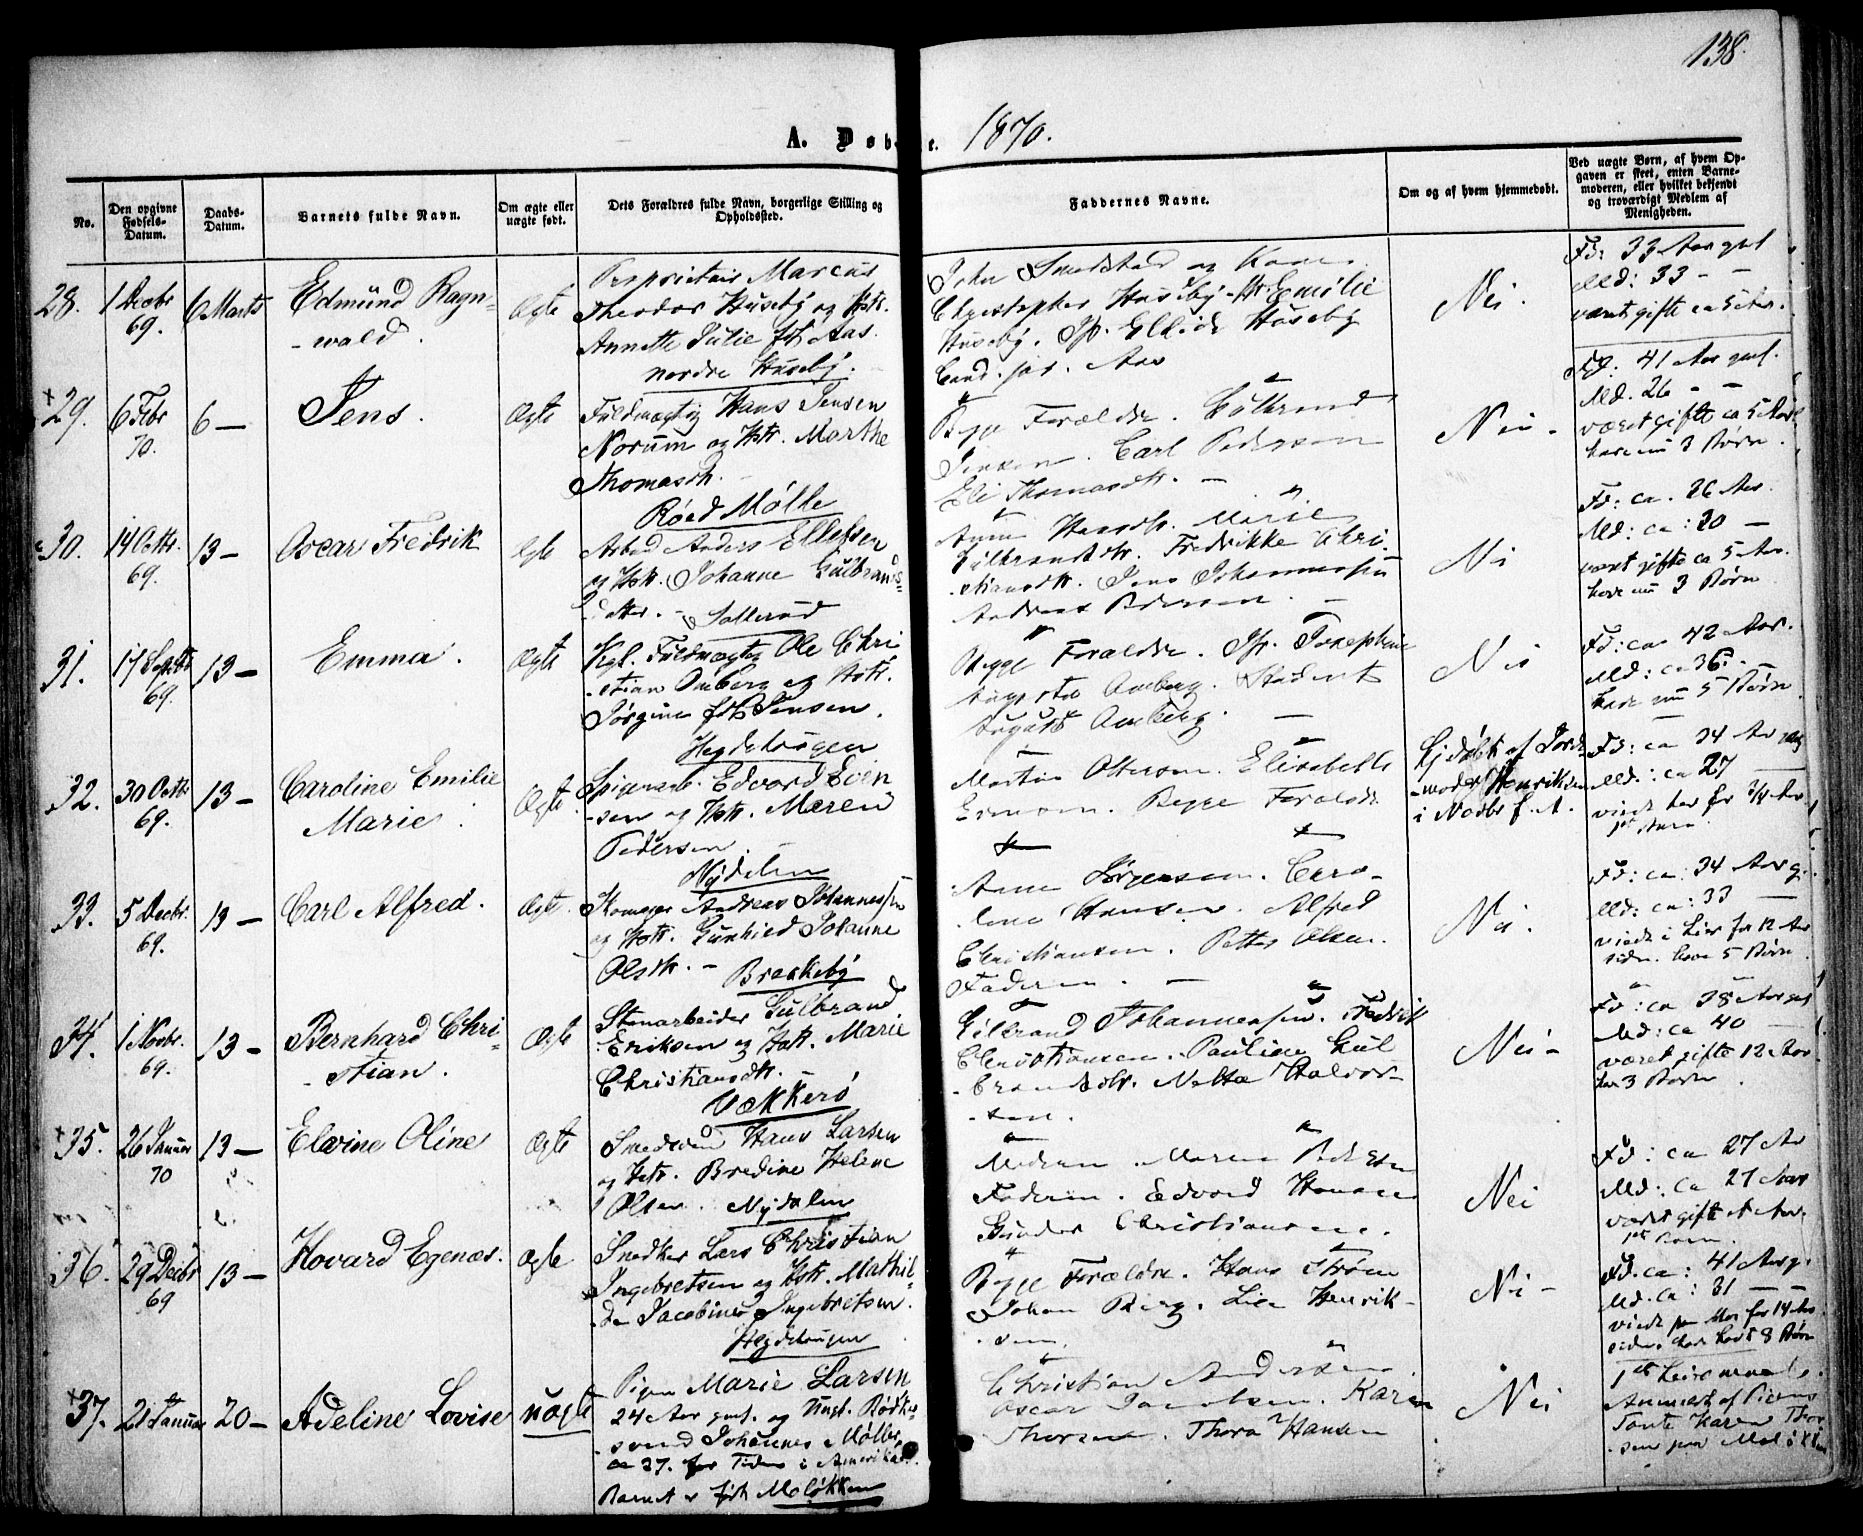 138.
A. Døbte. 1870.
No.
Den opgivne Fødsels-Datum.
Daabs-Datum.
Barnets fulde Navn.
Om ægte eller uægte født.
Dets Forældres fulde Navn, borgerlige Stilling og Opholdssted.
Faddernes Navne.
Om og af hvem hjemmedøbt.
Ved uægte Børn, af hvem Opgaven er skeet, enten Barnemoderen, eller hvilket bekjendt og troværdigt Medlem af Menigheden.
28. 1 Decbr 69. 6 Marts Edmund Ragn-
-wald.
Ægte
Proprietair Marcus
Theodor Huseby og Hstr.
Annette Julie fdt Aas.
nordre Huseby.
John Smedstad og Kone
Christopher Huseby Fr Emilie
Huseby. Jfr. Huseby
Cand. jur. Aas
Nei.
Fd: 33 Aar gml
Md: 33 - -
været gifte ca 5 Aar.
29. 6 Febr 70. 6 — Jens. Ægte
Fuldmægtig Hans Jensen
Norum og Hstr. Marthe
Thomasdtr.
Røed Mølle
Begge Forældre. Gulbrand
Jensen. Carl Pedersen
Eli Thomasdtr. —
Nei -
Fd: 41 Aar gml.
Md. 26 - -
været gifte ca 5 Aar
have nu 3 Børn.
30. 14 Octbr. 69. 13 — Oscar Fredrik Ægte
Arbd Anders Ellefsen
og Hstr. Johanne Gulbrands-
datter. - Sollerud
Anne Hansdtr. Marie
Gulbrandsdtr. Fredrikke Chri-
stiansdtr. Jens Johannessen
Andreas Pedersen. —
Nei
Fd: ca. 26 Aar.
Md: ca: 30 —
været gifte ca 5 Aar.
have nu 3 Børn
31. 17 Septbr 69. 13 — Emma. Ægte
Kgl. Fuldmægtig Ole Chri
-stian Omberg og Hstr.
Jørgine fdt Jensen.
Hegdehaugen
Begge Forældre. Jfr. Josephine
Augusta Omberg. Student
August Omberg. —
Nei
Fd: ca 42 Aar.
Md: ca 36. -
have nu 5 Børn
32. 30 Octbr. 69. 13 — Caroline Emilie
Marie.
Ægte
Spigerarb. Edvard Even
-sen og Hstr. Maren
Pedersen.
Nydalen
Martin Olsen. Elisabeth
Begge Forældre
Hjdøbt af Jorde
-moder Henriksen
i Novbr f. A.
Fd: ca 34 Aar
Md: ca 27 —
viede her for 3/4 Aar
1st Barn.
33. 5 Decbr. 69. 13 — Carl Alfred. Ægte
Skomager Andreas Johannessen
og Hstr. Gunhild Johanne
Olsdtr. - Brækkeby
Anne Jørgensen. Caro-
-line Hansen. Alfred
Christiansen. Petter Olsen.
Faderen. —
Nei.
Fd: ca: 34 Aar g.
Md: ca: 33 —
viede i Lier for 12 Aar
siden. have 5 Børn.
34. 1 Novbr. 69. 13 — Bernhard Chri-
-stian.
Ægte
Stenarbeider Gulbrand
Eriksen og Hstr. Marie
Christiansdtr.
Vækkerø
Gulbrand Johannessen. Fredrik
Christiansen. Pauline Gul
-brandsdtr. Netta Halvor-
-sen.
Nei -
Fd: ca 38 Aar gml
Md: ca 40 —
været gifte 12 Aar.
har 3 Børn.
35. 26 Januar 70 13 — Elvine Oline Ægte
Smedsvend Hans Larsen
og Hstr. Bredine Helene
Olsen. Nydalen
Moderen. Maren Pedersen
Faderen. Edvard Hansen
Gunder Christiansen.
Nei
Fd: ca 27 Aar
Md: ca 27 Aar
været gift 1 Aar.
1st Barn.
36. 29 Decbr 69 13 — Hovard Egenæs. Ægte
Snedker Lars Christian
Ingebretsen og Hstr. Mathil-
-de Jacobine Ingebretsen.
Hegdehaugen
Begge Forældre. Hans Strøm
Johan Berg. Lise Henrik-
-sen.
Nei -
Fd. ca: 41 Aar g.
Md. ca: 31 —
viede paa Mos for 14 Aar
siden. har havt 8 Børn
37. 21 Januar 20 — Adeline Lovise uægte
Pigen Marie Larsen
24 Aar gml. og Ungk. Bødker-
svend Johannes Møller,
ca 27. for Tiden i Amerika.
Barnet er født Meløkken
Christian Andersen
Oscar Jacobsen. Karen
Thorsen. Thora Hansen
Nei
1st Leiermaal.
Anmeldt af Pigens
Tante Karen Thor
-sen paa Meløkken